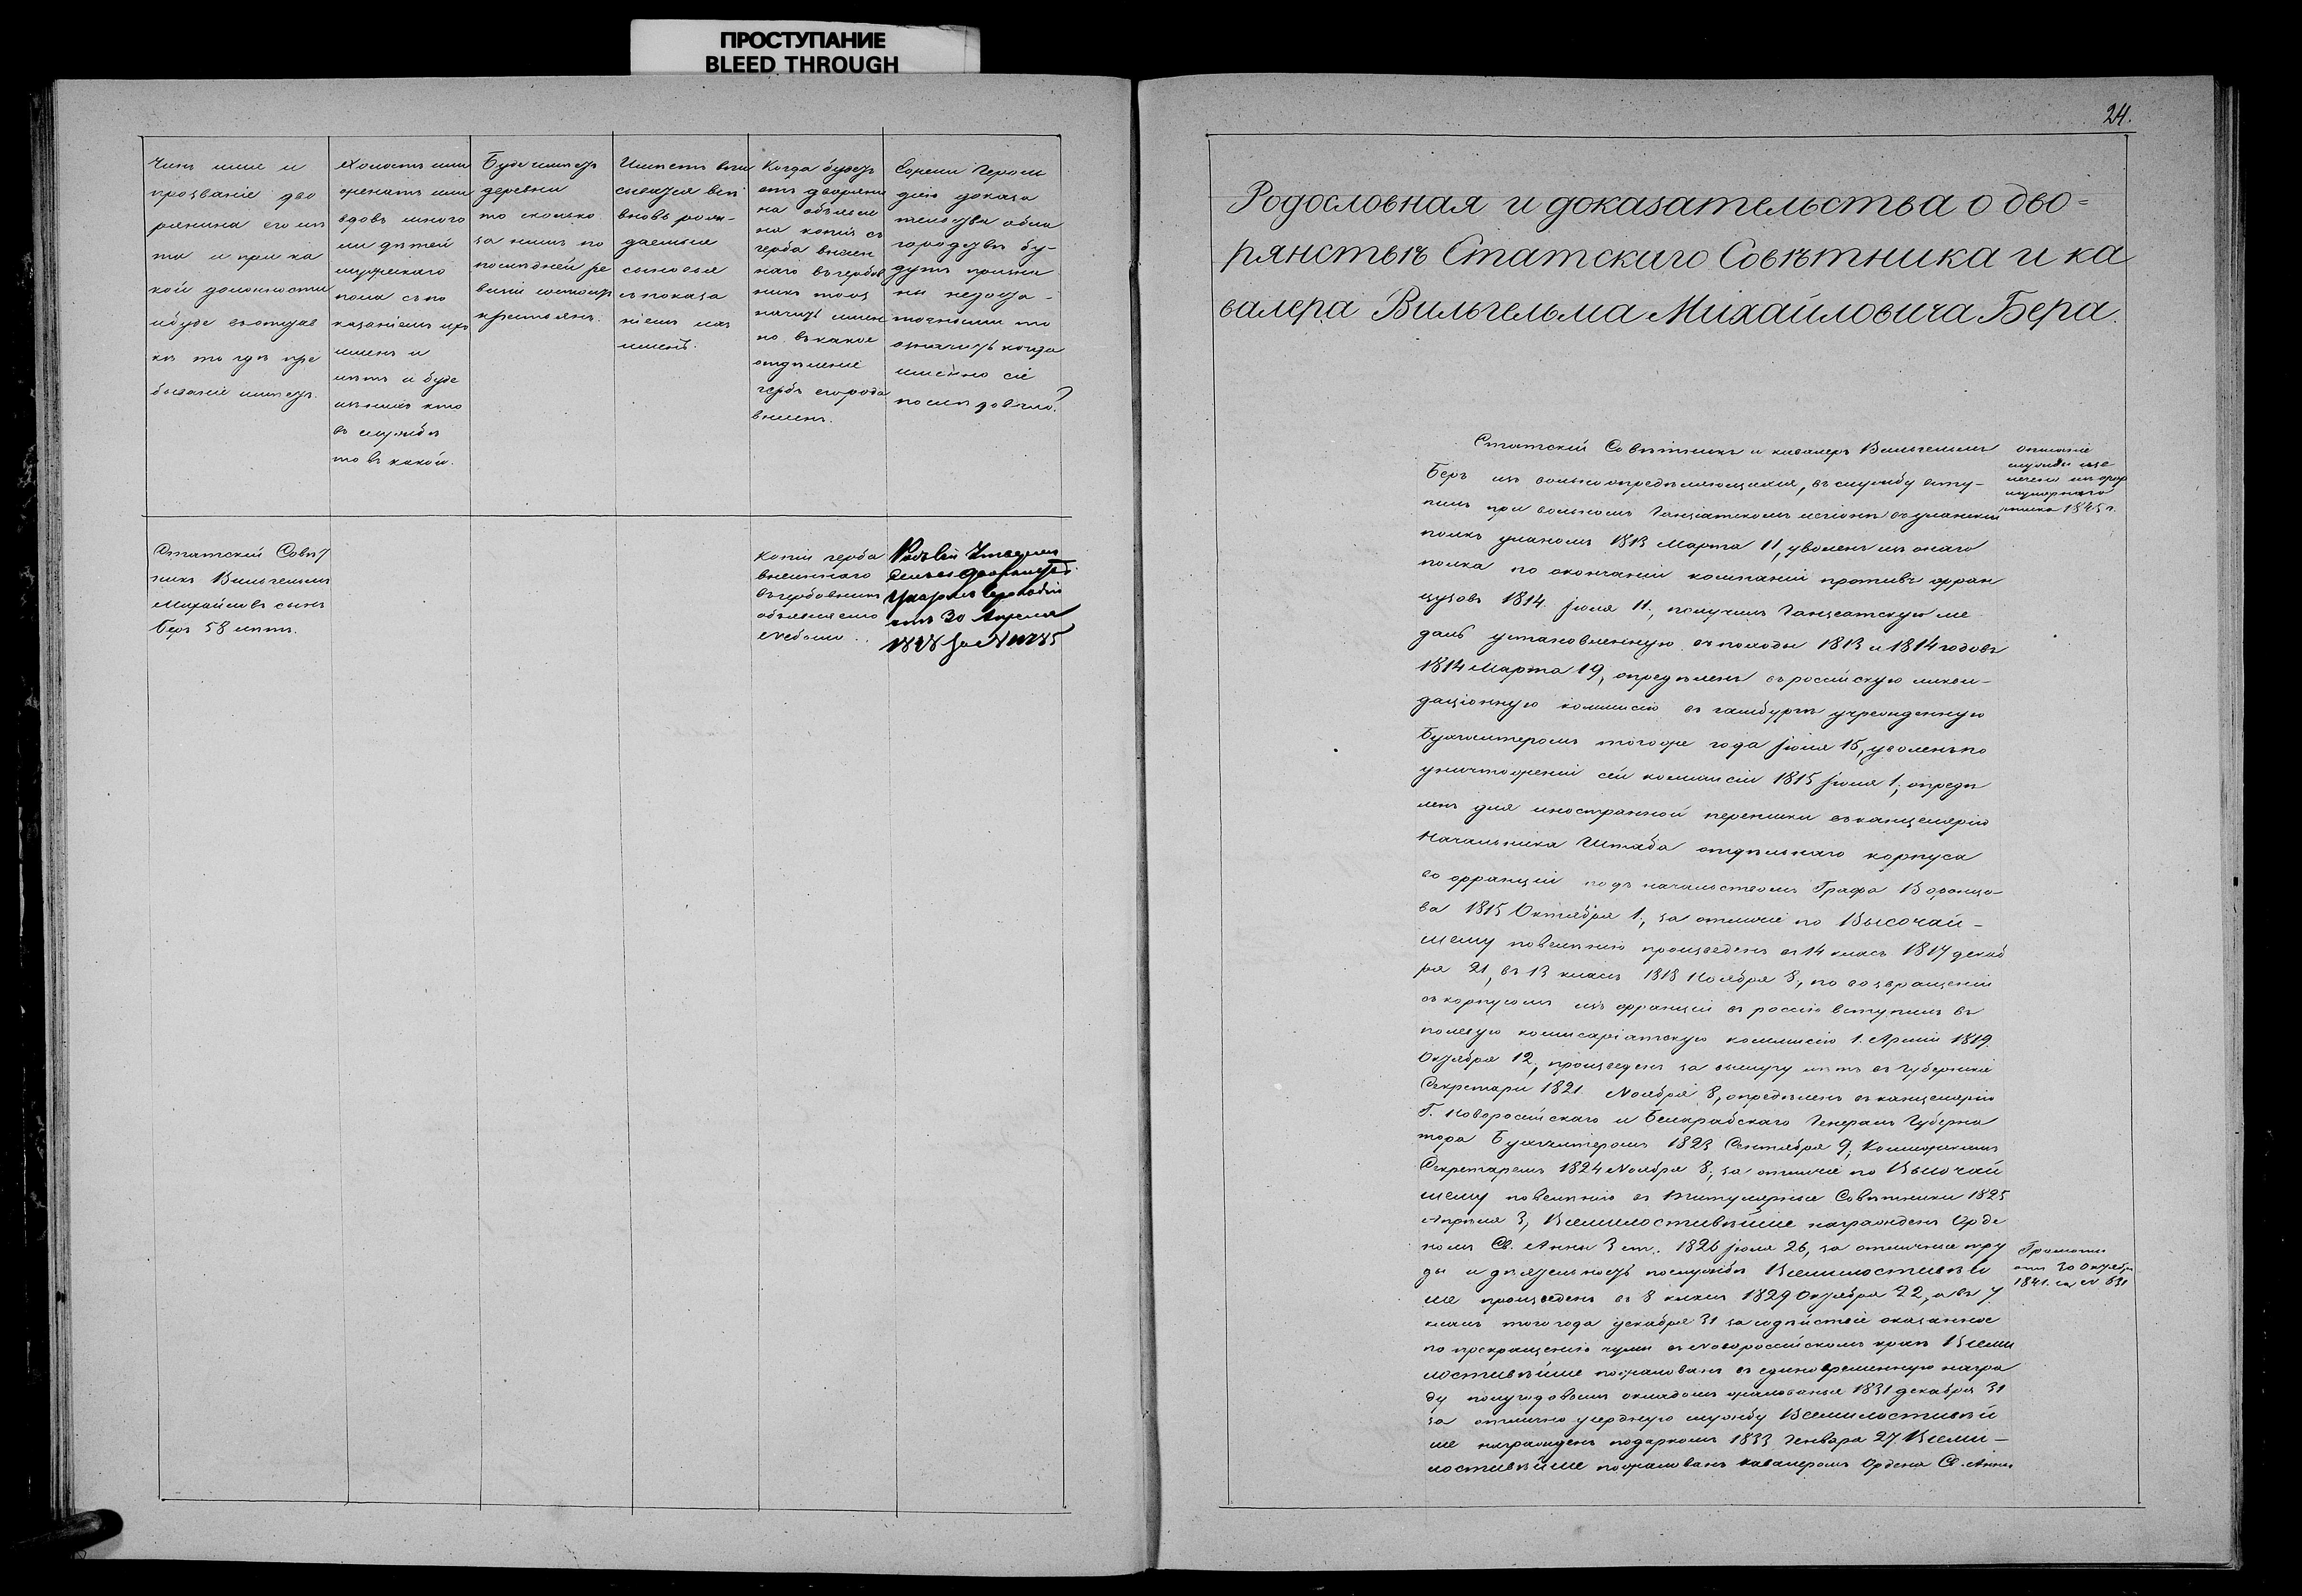 ПРОСТУПАНИЕ
BLEED THROUGH
Чинъ имя и
прозваніе дво
рянина его лѣ
та и при ка
кой должности
ибуде въотстав
кѣ то гдѣ пре
бываніе имѣетъ.
Холостъ или
женатъ или
вдовъ много
ли дѣтей
мужескаго
пола съпо
казаніемъ ихъ
именъ и
лѣтъ и буде
изънихъ кто
въ службѣ
то въ какой.
Буде имѣетъ
деревни
то сколько
за нимъ по
послѣдней ре
визіи состоитъ
крестьянъ.
вновь рож-
даемыя
сыновья
съпоказа
ніемъ ихъ
именъ.
Когда будетъ
отъ дворяни
на объявле
на копія съ
герба внесен
наго въгербов
никъ тооз
начить имен
но въ какое
отдѣленіе
гербъ егорода
внесенъ.
дію доказа
тельства обла
городствѣ бу-
дутъ призна
ны недоста-
точными то
означить когда
именно сіе
послѣдовало?
Статскій Совѣт
никъ Вильгельмъ
Михайловъ сынъ
Беръ 58 лѣтъ.
копіи герба
внесеннаго
въгербовникъ
объявляемо
небыло.
Указомъ Герольдіи
отъ 30 Апреля
24.
Родословная и доказательства о дво=
рянствѣ Статскаго Совѣтника и ка
валера Вильгельма Михайловича Бера.
Статскій Совѣтникъ и кавалеръ Вильгельмъ
Беръ изъ вольноопредѣляющихся, въслужбу всту-
пилъ при вольномъ Ганзіатскомъ легіонѣ въуланскій
полкъ уланомъ 1813 Марта 11, уволенъ изъ онаго
полка по окончаніи компаніи противъ фран
цузовъ 1814. Іюля 11., получилъ Ганзеатскую ме
даль установленную въпоходы 1813 и 1814 годовъ
1814 Марта 19, опредѣленъ въроссійскую ликви-
даціонную коммисію въ гамбургѣ учрежденную
Бухгалтеромъ тогоже года Іюля 15, уволенъпо
уничтоженіи сей комисіи 1815 Іюля 1; опредѣ
ленъ для иностранной переписки въканцелярію
Начальника Штаба отдѣльнаго корпуса
во франціи подъ начальствомъ Графа Воронцо-
ва 1815 Октября 1., за отличіе по Высочай-
шему повелѣнію произведенъ въ14 класъ 1817 декаб
ря 21, въ 13 класъ 1818 Ноября 8, по возвращеніи
съкорпусомъ изъ франціи въ россію вступилъ въ
полевую комисаріатскую коммисію 1. Арміи 1819.
Октября 12, произведенъ за выслугу лѣтъ въ Губернскіе
Секретари 1821. Ноября 8, опредѣленъ въ канцелярію
Г. Новоросійскаго и Бессарабскаго Генералъ Губерна
тора Бухгалтеромъ 1823 Сентября 9; Коллежскимъ
Секретаремъ 1824 Ноября 8; за отличіе по Высочай
шему повелѣнію въ Титулярные Совѣтники 1825
Апреля 3, Всемилостивѣйше награжденъ Орде
номъ Св. Анны 3 ст. 1826 Іюля 26, за отличные тру
ды и дѣятельность послужбѣ Всемилостивѣй
ше произведенъ въ 8 класъ 1829 Октября 22, а въ 7
класъ того года декабря 31 за содѣйствіе оказанное
по прекращенію чумы въ Новороссійскомъ краѣ Всеми
лостивѣйше пожалованъ въ единовременную награ
ду полугодовымъ окладомъ жалованья 1831 декабря 31
за отлично усердную службу Всемилостивѣй
ше награжденъ подаркомъ 1833 Генваря 27. Всеми-
лостивѣйше пожалованъ кавалеромъ Ордена Св. Анны
описаніе
службы
1845 г.
Грамота
отъ 30 Октября
1841. за N 631